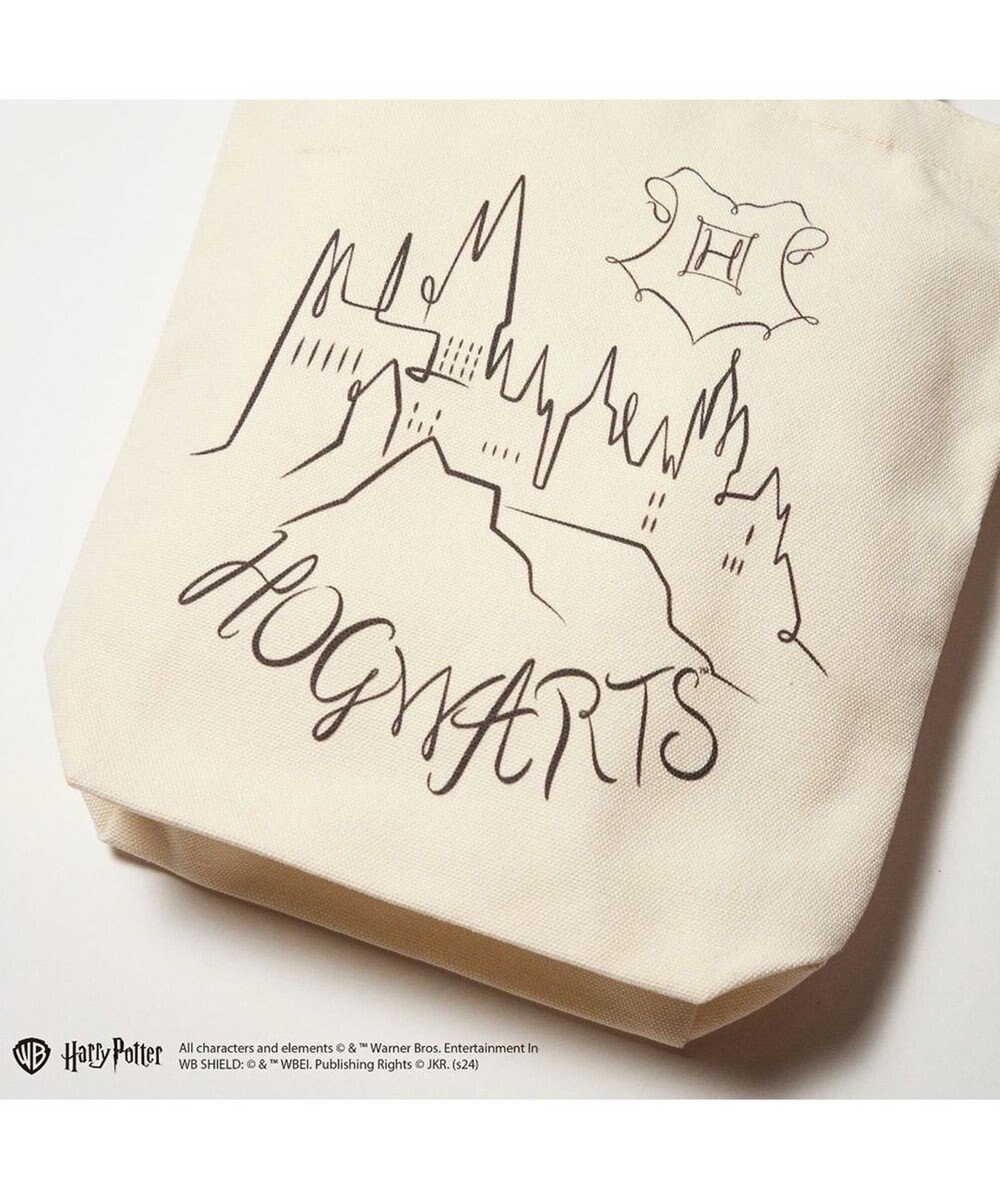 H
HOGWARTS™
WB
Harry Potter
All characters and elements © & ™ Warner Bros. Entertainment In
WB SHIELD: © & ™ WBEI. Publishing Rights © JKR. (s24)